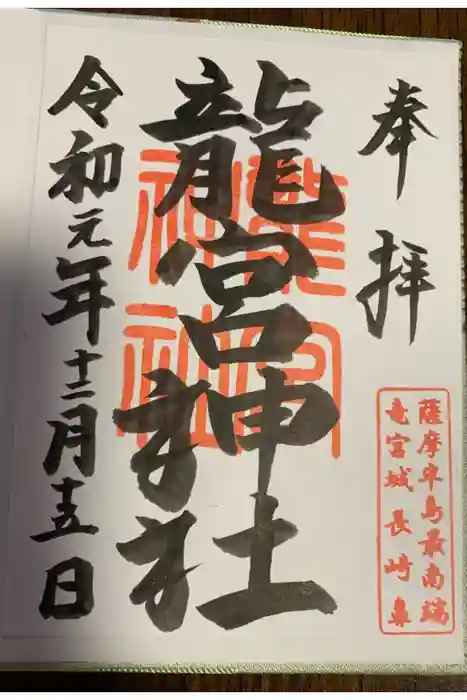 奉拝
薩摩半島最南端
竜宮城長崎鼻
龍宮神社
龍宮
神社
令和元年十二月十五日